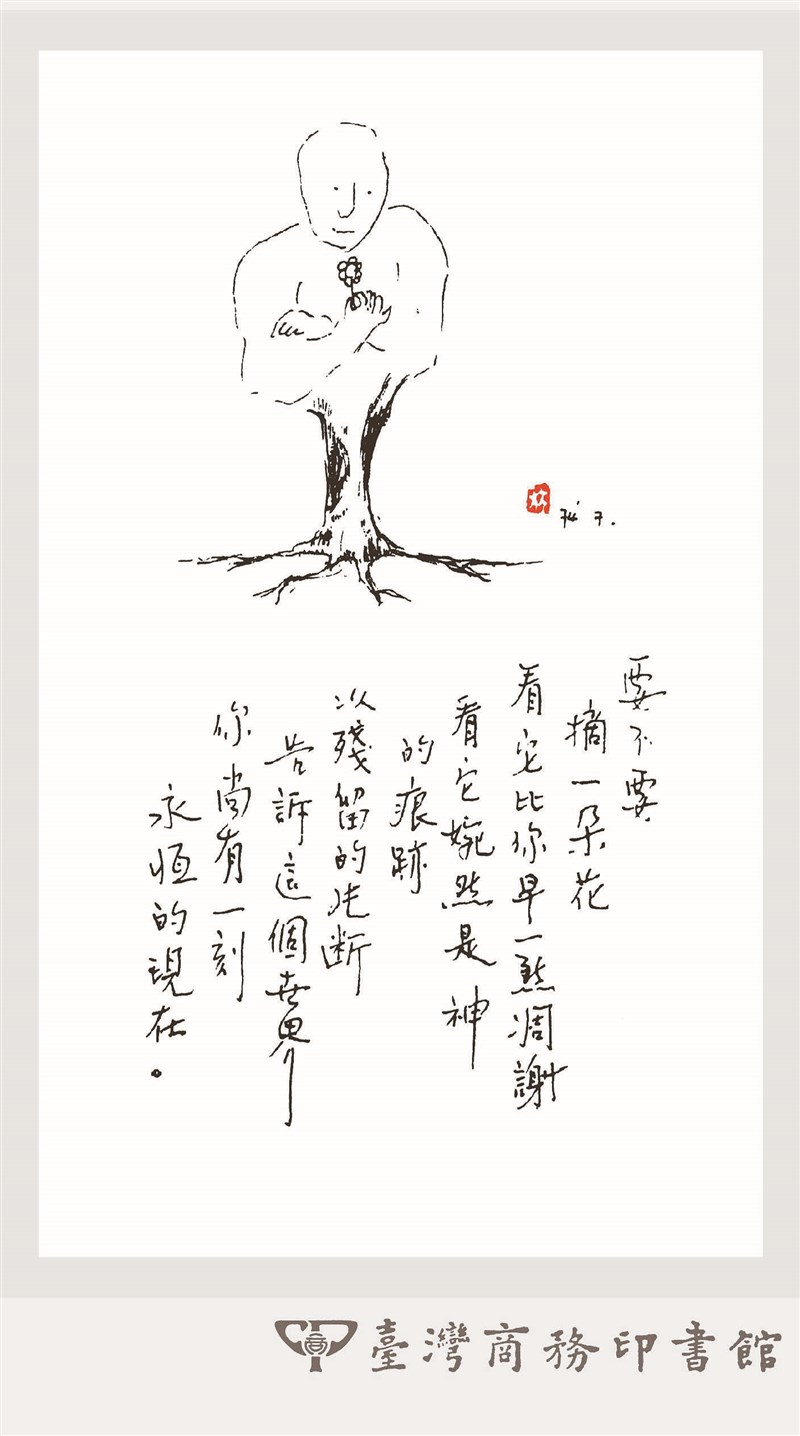 要不要
摘一朵花
看它比你早一點凋謝
看它婉然是神
的痕跡
以殘留的
告訴這個世界
你尚有一刻
永恒的現在。
臺灣商務印書館